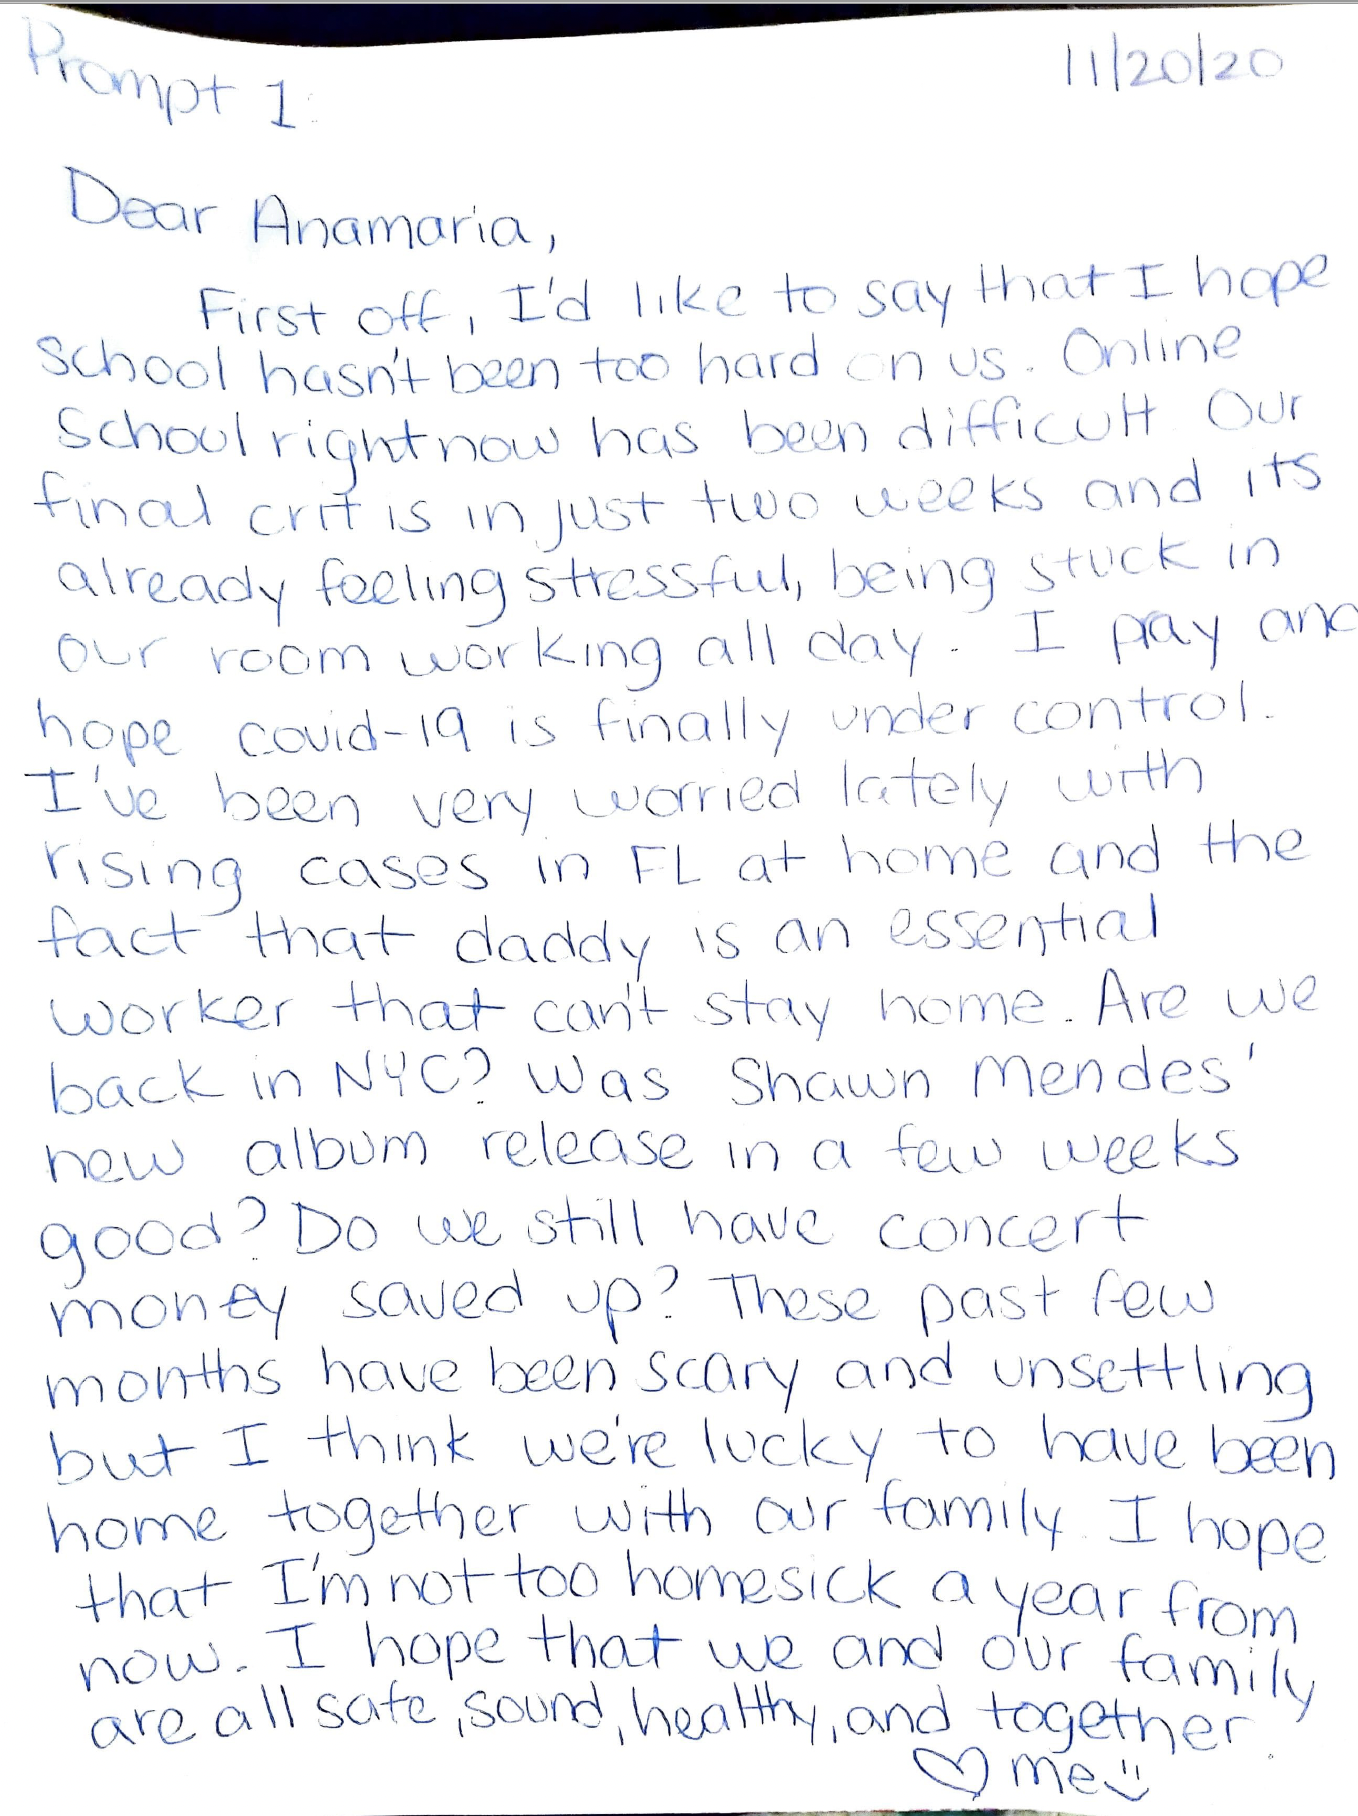 Prompt 1:
11/20/20
Dear Anamaria,
First off, I'd like to say that I hope
school hasn't been too hard on us. Online
School right now has been difficult. Our
final crit is in just two weeks and its
already feeling stressful, being stuck in
our room working all day. I pray and
hope covid-19 is finally under control.
I've been very worried lately with
rising cases in FL at home and the
fact that daddy is an essential
worker that can't stay home. Are we
back in NYC? Was Shawn Mendes'
new album release in a few weeks
good? Do we still have concert
money saved up? These past few
months have been scary and unsettling
but I think we're lucky to have been
home together with our family. I hope
that I'm not too homesick a year from
now. I hope that we and our family
are all safe, sound, healthy, and together.
♡ me :)